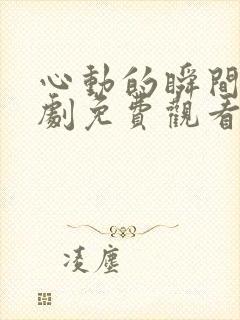 心動的瞬間
劇免費觀看
凌塵